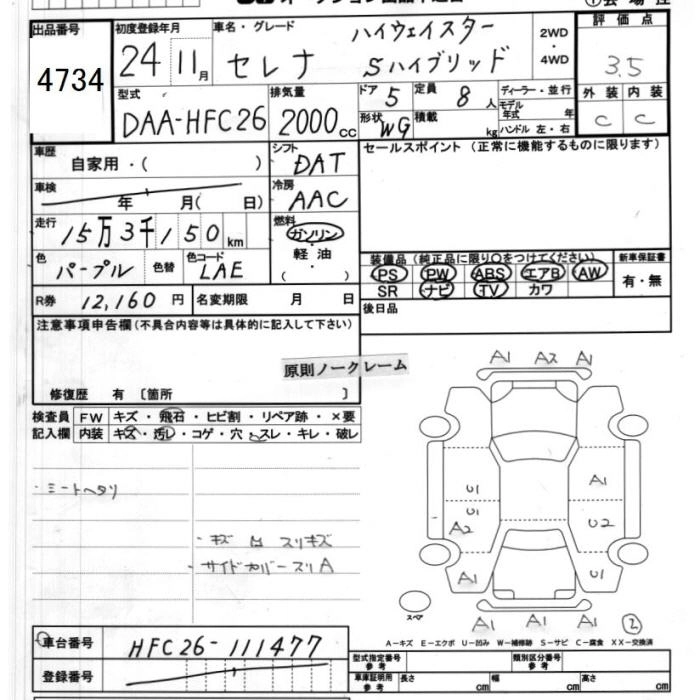 出品番号 4734
初度登録年月 24 11月
車名・グレード ハイウェイスター
セレナ Sハイブリッド
2WD・4WD
評価点 3.5
外装 内装
C C
型式 DAA-HFC26
排気量 2000cc
ドア 5 定員 8人
形状 WG 積載 kg
ディーラー・並行
モデル年式 年
ハンドル 左・右
車歴 自家用・( )
シフト DAT
セールスポイント(正常に機能するものに限ります)
車検 年 月( 日)
冷房 AAC
走行 15万3千150km
燃料 ガソリン・軽油・( )
色 パープル 色替 色コード LAE
装備品(純正品に限り〇をつけてください) 新車保証書
PS PW ABS エアB AW 有・無
SR ナビ TV カワ
R券 12,160円 名変期限 月 日
後日品
注意事項申告欄(不具合内容等は具体的に記入して下さい)
原則ノークレーム
修復歴 有 〔箇所 〕
検査員記入欄
FW キズ・飛石・ヒビ割・リペア跡・×要
内装 キズ・汚レ・コゲ・穴・スレ・キレ・破レ
・ミートヘタリ
・キズ スリキズ
・サイドカバースリA
A1 A2 A1
U1 A1
U1
A2 U2
A1 U1
A1 A1 A1
スペア
2
A-キズ E-エクボ U-凹み W-補修跡 S-サビ C-腐食 XX-交換済
車台番号 HFC26-111477
登録番号
型式指定番号参考 類別区分番号参考
車庫証明用参考 長さ cm 幅 cm 高さ cm